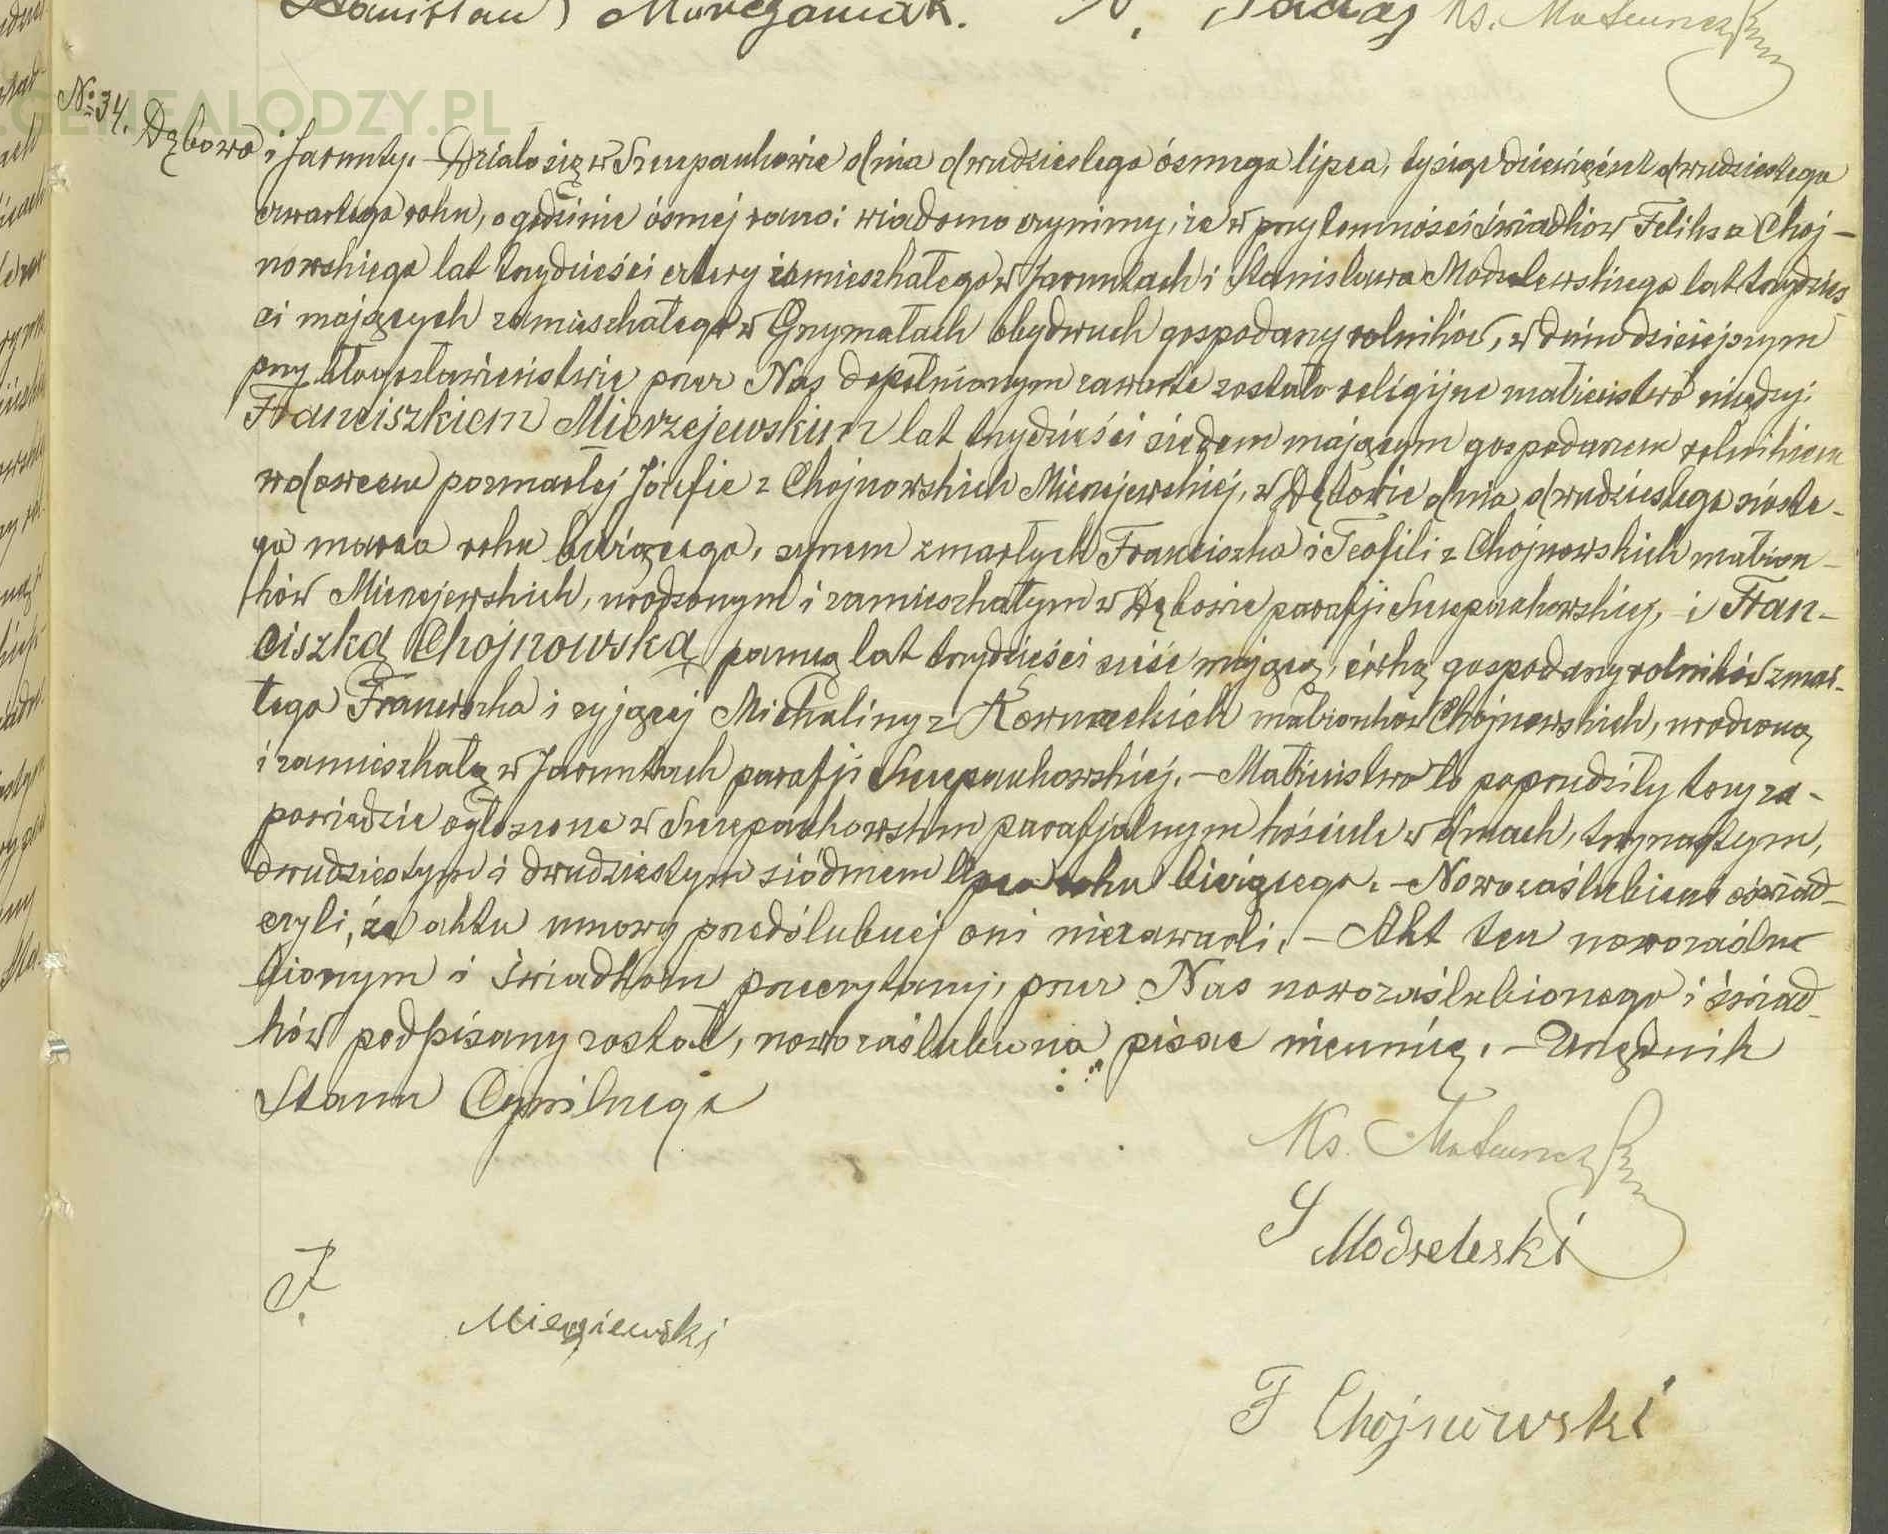 Stanisław Marczaniak. Ks. Matuszcz
GENEALODZY.PL
№ 34. Dąbowo i Jarnuty. – Działo się w Szczepankowie dnia dwudziestego ósmego lipca, tysiąc dziewięćset dwudziestego
czwartego roku, o godzinie ósmej rano: wiadomo czynimy, że w przytomności świadków Feliksa Choj–
nowskiego lat trzydzieści cztery zamieszkałego w Jarnutach i Stanisława Modzelewskiego lat trzydzieś
ci mających zamieszkałego w Grzymałach obydwuch gospodarzy rolników, w dniu dzisiejszym
przy błogosławieństwie przez Nas dopełnionym zawarte zostało religijne małżeństwo między:
Franciszkiem Mierzejewskim lat trzydzieści siedem mającym gospodarzem rolnikiem
wdowcem po zmarłej Józefie z Chojnowskich Mierzejewskiej, w Dębowie dnia dwudziestego szóste–
go marca roku bieżącego, synem zmarłych Franciszka i Teofili z Chojnowskich małżon–
ków Mierzejewskich, urodzonym i zamieszkałym w Dębowie parafji Szczepankowskiej, – i Fran–
ciszką Chojnowską panną lat trzydzieści sześć mającą, córką gospodarzy rolników zmar–
łego Franciszka i żyjącej Michaliny z Kownackich małżonków Chojnowskich, urodzoną
i zamieszkałą w Jarnutach parafji Szczepankowskiej. – Małżeństwo to poprzedziły trzy za–
powiedzie ogłoszone w Szczepankowskim parafjalnym kościele w dniach, trzynastym,
dwudziestym i dwudziestym siódmem lipca roku bieżącego. – Nowozaślubieni oświad–
czyli, że aktu umowy przedślubnej oni niezawarli. – Akt ten nowozaślu
bionym i świadkom przeczytany, przez Nas nowozaślubionego i świad–
ków podpisany został, nowozaślubiona pisać nieumie. – Urzędnik
Stanu Cywilnego
Ks. Matuszcz
S Modzeleski
F. Mierzjewski
F Chojnowski